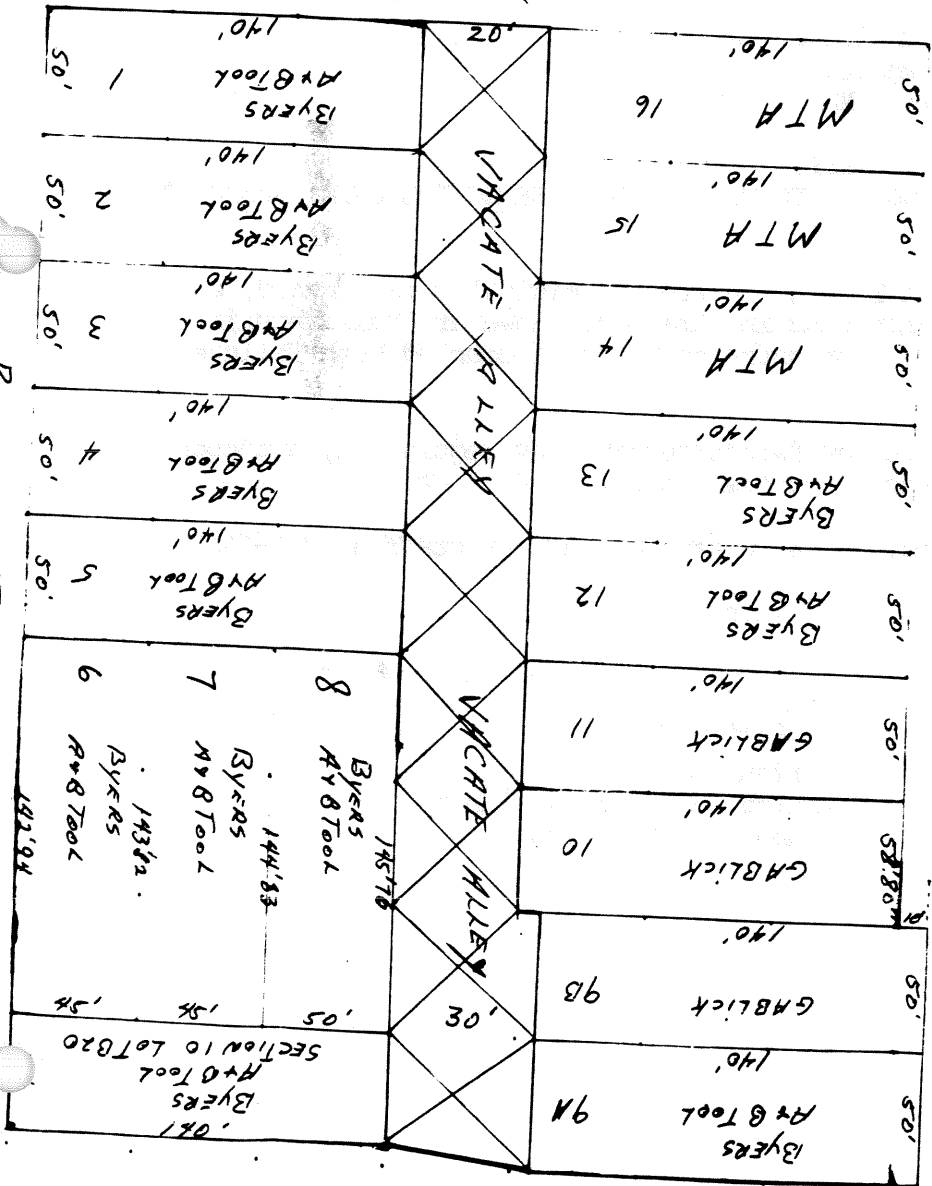 20'
140'
50'
1
Byers
A&B Tool
140'
50'
2
Byers
A&B Tool
140'
50'
3
Byers
A&B Tool
140'
50'
4
Byers
A&B Tool
140'
50'
5
Byers
A&B Tool
6
Byers
A&B Tool
142'94
7
Byers
A&B Tool
143'82
8
Byers
A&B Tool
144'83
145'76
45'
45'
50'
SECTION 10 LOT B20
Byers
A&B Tool
140'
VACATE ALLEY
VACATE ALLEY
30'
140'
50'
MTA
16
140'
50'
MTA
15
140'
50'
MTA
14
140'
50'
Byers
A&B Tool
13
140'
50'
Byers
A&B Tool
12
140'
50'
GABLICK
11
140'
58.80
GABLICK
10
140'
50'
GABLICK
9B
140'
50'
Byers
A&B Tool
9A